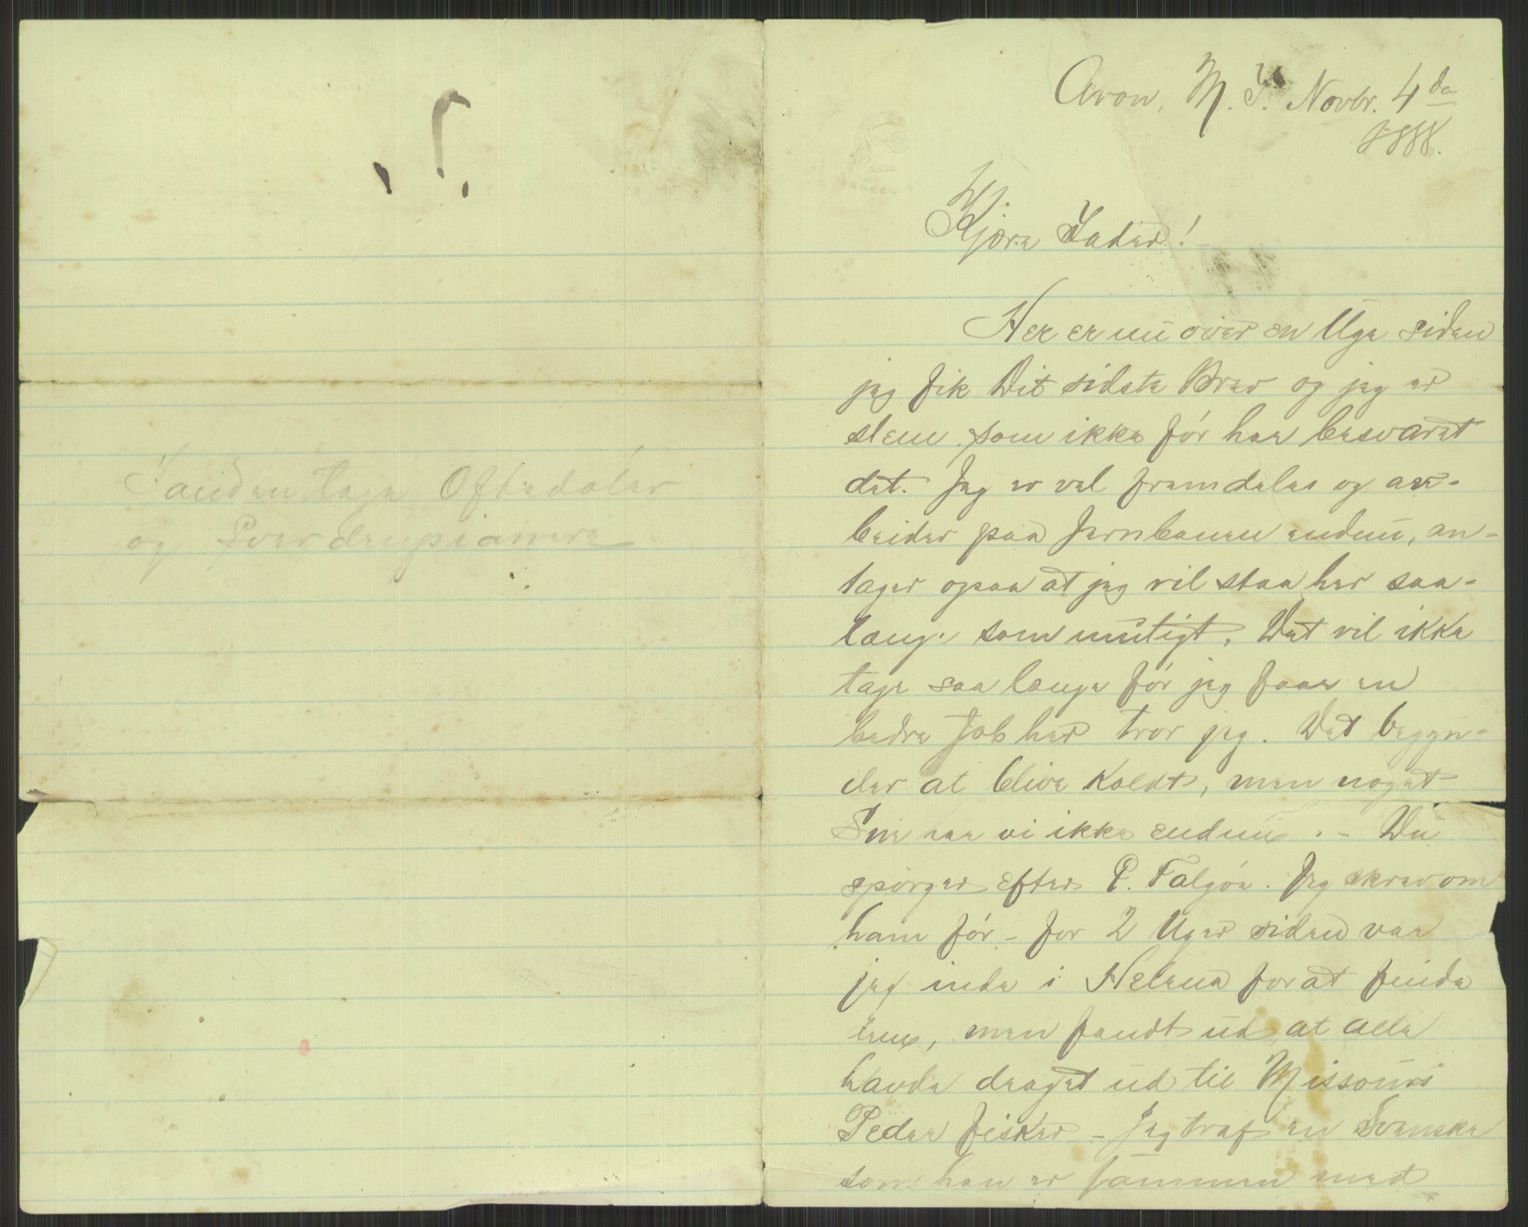 Fanden tage Oftedøler
og
Avon, M. T. Novbr. 4de
1888.
Kjære Fader!
Her er nu over en Uge siden
jeg fik Dit sidste Brev og jeg er
slem som ikke før har besvaret
det. Jeg er vel fremdeles og ar-
beider paa Jernbanen endnu, an-
tager ogsaa at jeg vil staa her saa-
længe som muligt. Det vil ikke
tage saa længe før jeg faar en
bedre Job her tror jeg. Det begyn-
der at blive Koldt, men noget
Sne har vi ikke endnu. – Du
spørger efter P. Faljøe. Jeg skrev om
ham før – for 2 Uger siden var
jeg inde i Helena for at finde
ham, men fandt ud at alle
havde draget ud til Missouri
Peder fisker – Jeg traf en Svenske
som han er sammen med